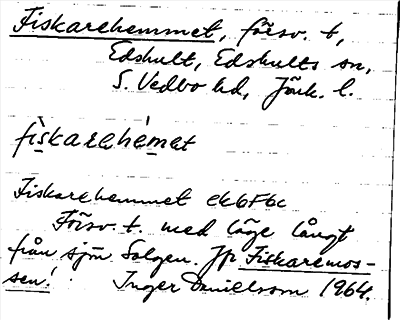 Fiskarehemmet, försv. t,
Edshult, Edshults sn,
S. Vedbo hd, Jönk. l.
fìskarehémet
Fiskarehemmet ek 6F6c
Försv. t. med läge långt
från sjön Solgen. Jfr Fiskaremos-
sen!
Inger Danielsson 1964.